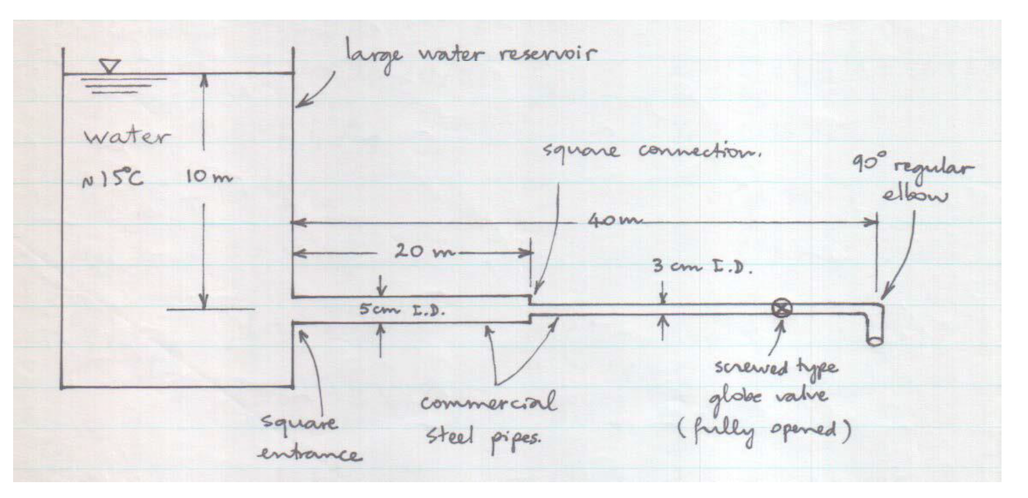 large water reservoir
water
~15°C
10 m
square connection.
90° regular
elbow
40 m
20 m
3 cm I.D.
5 cm I.D.
screwed type
globe valve
(fully opened)
commercial
steel pipes.
square
entrance